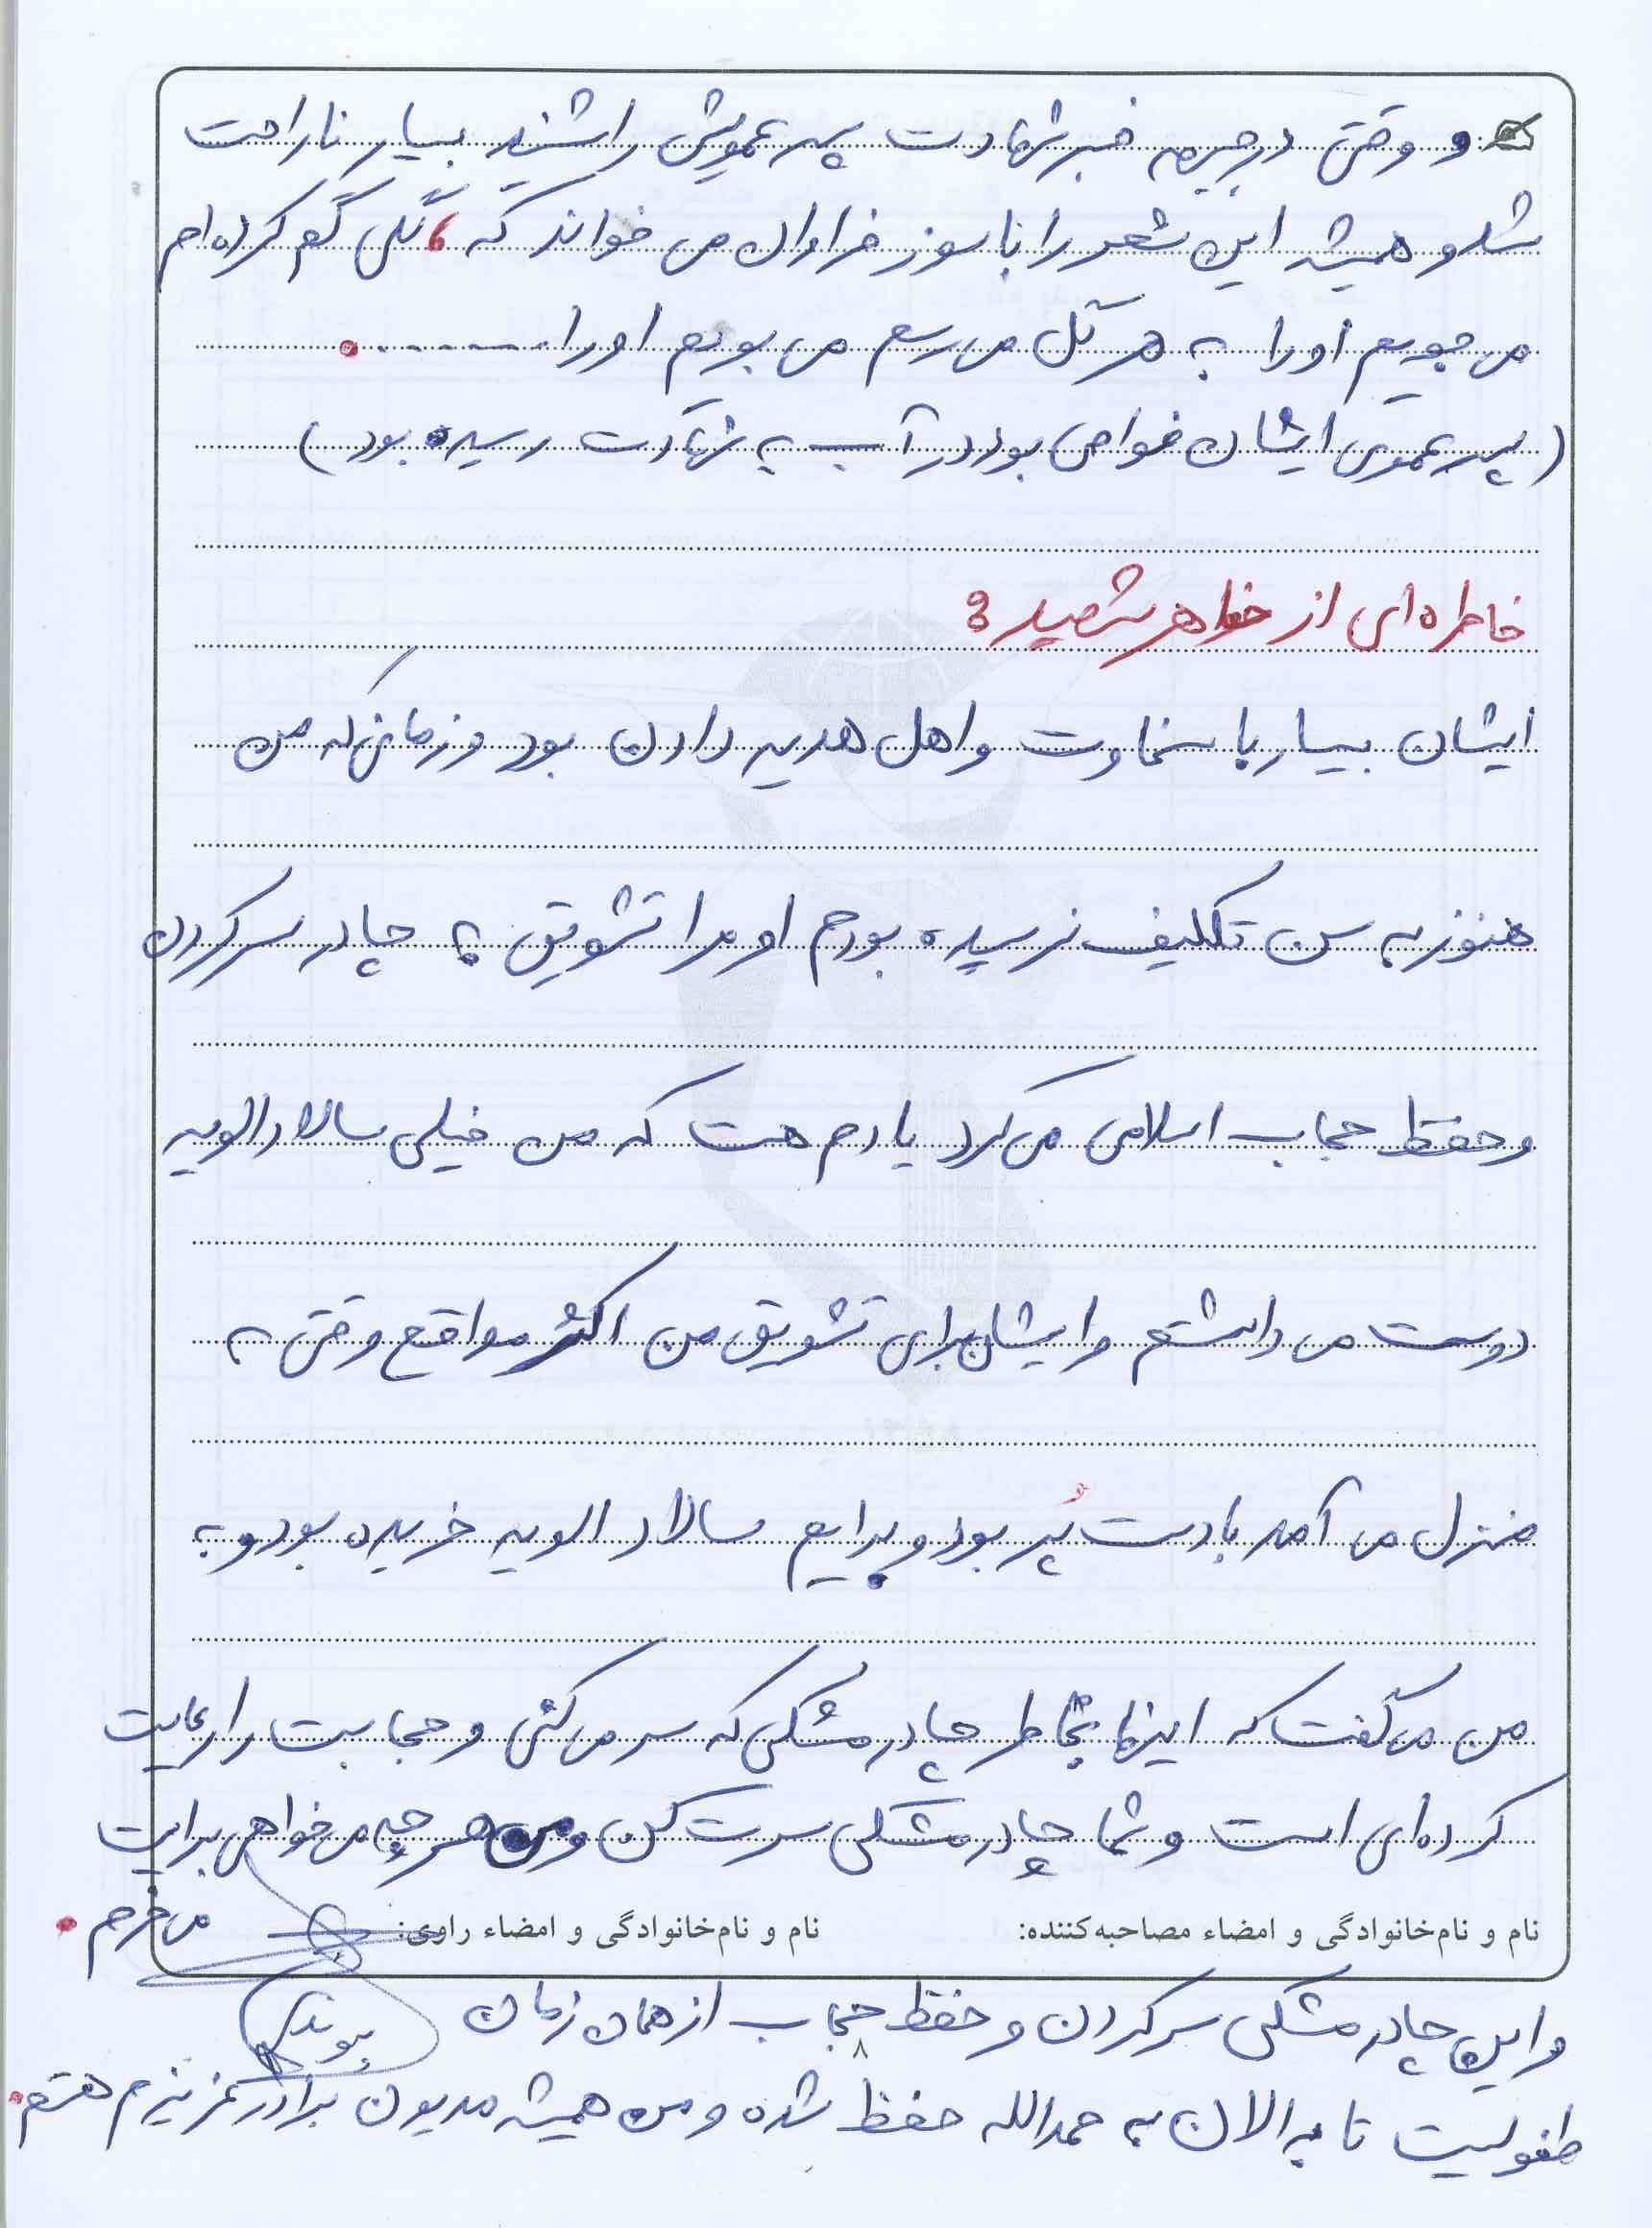 و وقتی در جبهه خبر شهادت پسر عمویش را شنید بسیار ناراحت
شد و همیشه این شعر را با سوز فراوان می خواند که ، گلی گم کرده ام
می جویم او را به هر گل می رسم می بویم او را ..........
(پسر عموی ایشان غواص بود در آب به شهادت رسیده بود)
خاطره ای از خواهر شهید:
ایشان بسیار با سخاوت و اهل هدیه دادن بود و زمانی که من
هنوز به سن تکلیف نرسیده بودم او مرا تشویق به چادر سر کردن
و حفظ حجاب اسلامی می کرد یادم هست که من خیلی سالاد الویه
دوست می داشتم و ایشان برای تشویق من اکثر مواقع وقتی به
منزل می آمد با دست پُر بود و برایم سالاد الویه خریده بود و به
من می گفت که اینها بخاطر چادر مشکی که سر می کنی و حجابت را رعایت
کرده ای است و شما چادر مشکی سرت کن و من هر چه می خواهی برایت
می خرم .
نام و نام‌خانوادگی و امضاء مصاحبه‌کننده: نام و نام‌خانوادگی و امضاء راوی:
و این چادر مشکی سر کردن و حفظ حجاب از همان زمان
۸
طفولیت تا به الان به حمدالله حفظ شده و من همیشه مدیون برادر عزیزم هستم .